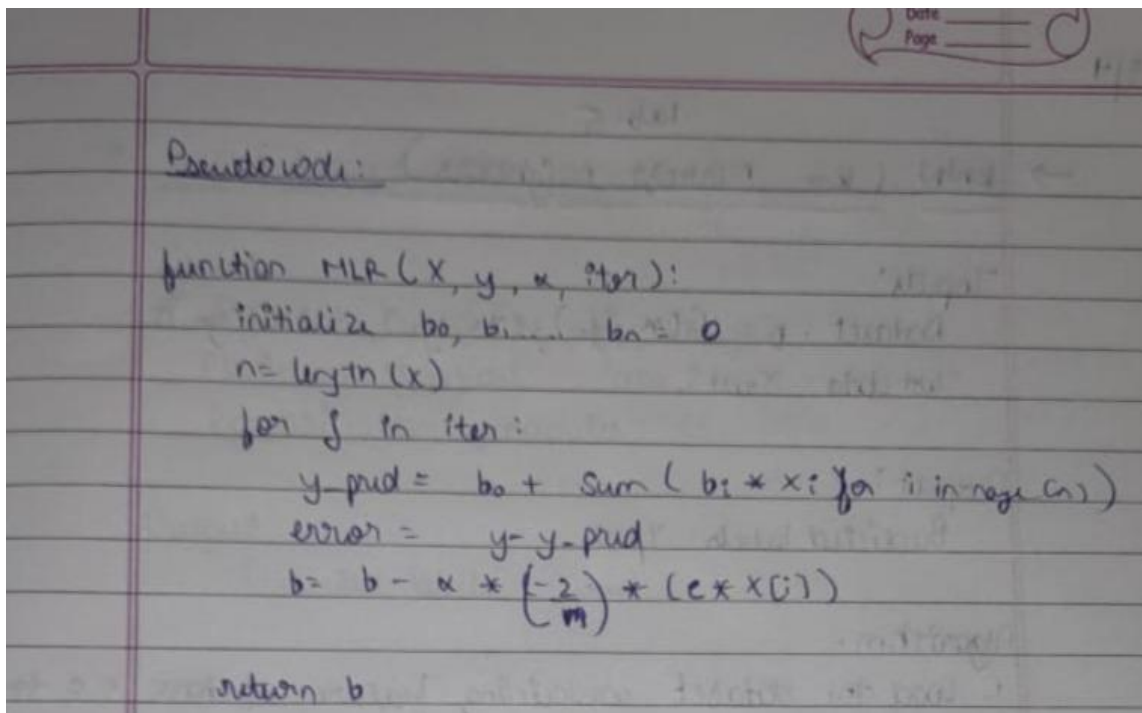 Date
Page
Pseudocode:
function MLR (X, y, α, iter):
initialize b0, b1.... bn = 0
n = length (x)
for j in iter:
y_pred = b0 + sum ( bi * xi for i in range (n))
error = y - y_pred
b = b - α * (-2/m) * (e * X[i])
return b